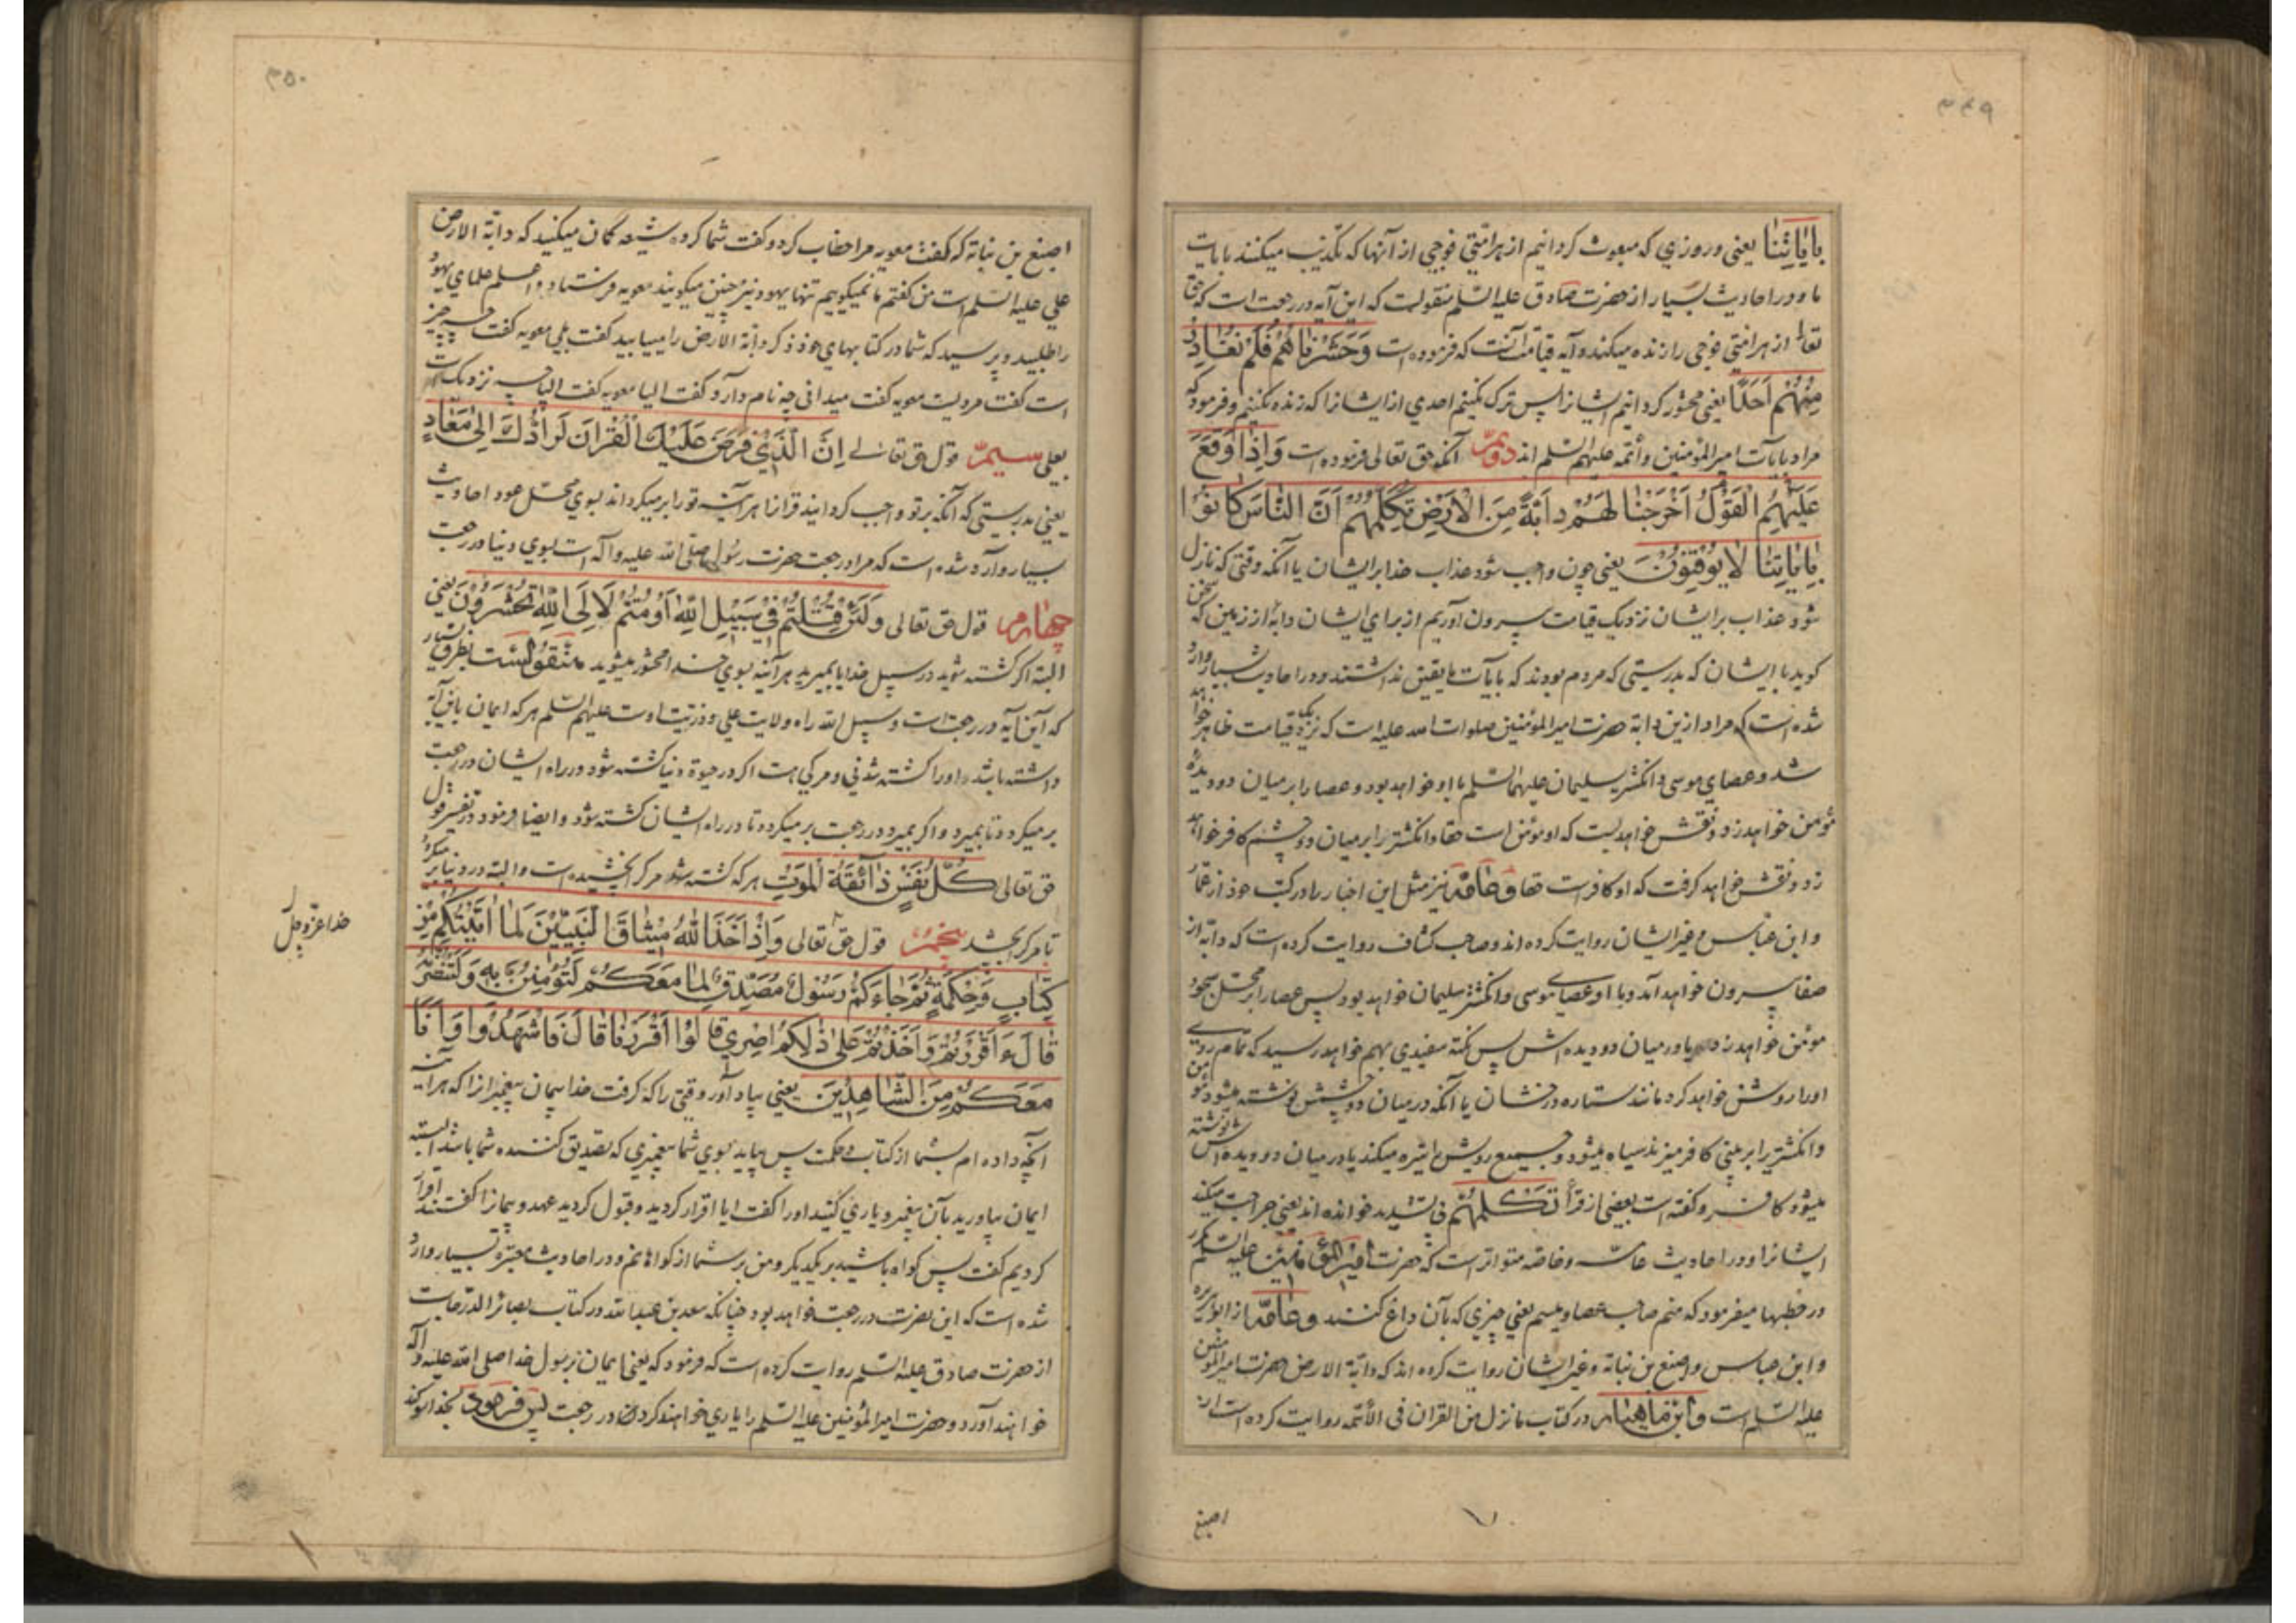 ۳۴۹
بِاٰیٰاتِنٰا یعنی و روزی که مبعوث کردانیم از هر امّتی فوجی از آنها که تکذیب میکنند بایات
ما و در احادیث بسیار از حضرت صادق علیه السّلم منقولست که این آیه در رجعت است که حق
تعالی از هر امتی فوجی را زنده میکند و آیه قیامت آنست که فرموده است وَحَشَرْنٰاهُمْ فَلَمْ نُغٰادِرْ
مِنْهُمْ اَحَدًا یعنی محشور کردانیم ایشانرا پس ترک نکنیم احدی از ایشانرا که زنده نکنیم و فرمود که
مراد بآیات امیر المؤمنین و أئمّه علیهم السّلم اند دویمّ آنکه حق تعالی فرموده است وَاِذٰا وَقَعَ
عَلَیْهِمُ الْقَوْلُ اَخْرَجْنٰا لَهُمْ دٰابَّةً مِنَ الْاَرْضِ تُکَلِّمُهُمْ اَنَّ النّٰاسَ کٰانُوْا
بِاٰیٰاتِنٰا لٰا یُوْقِنُوْنَ یعنی چون واجب شود عذاب خدا بر ایشان یا آنکه وقتی که نازل
شود عذاب بر ایشان نزدیک قیامت بیرون آوریم از برای ایشان دابّه از زمین که سخن
کوید با ایشان که بدرستی که مردم بودند که بآیات ما یقین نداشتند و در احادیث بسیار وارد
شده است که مراد ازین دابّه حضرت امیر المؤمنین صلوات الله علیه است که نزدیک قیامت ظاهر خواهد
شد و عصای موسی و انکشتر سلیمان علیهما السّلم با او خواهد بود و عصا را بر میان دو دیدهٔ
مؤمن خواهد زد و نقش خواهد بست که او مؤمن است حقا و انکشتر را بر میان دو چشم کافر خواهد
زد و نقش خواهد کرفت که او کافرست حقا و عامّه نیز مثل این اخبار را در کتب خود از عمّار
و ابن عبّاس و غیر ایشان روایت کرده اند و صاحب کشاف روایت کرده است که دابّه از
صفا بیرون خواهد آمد و با او عصای موسی و انکشتر سلیمان خواهد بود پس عصا را بر محلّ سجود
مؤمن خواهد زد یا در میان دو دیده اش پس نکتهٔ سفیدی بهم خواهد رسید که تمام روی
او را روشن خواهد کرد مانند ستارهٔ درخشان یا آنکه در میان دو چشمش نوشته میشود مؤمن
و انکشتر را بر بینی کافر میزند سیاه میشود و جمیع رویش را تیره میکند یا در میان دو دیده اش نوشته
میشود کافر و کفته است بعضی از قرّاء تَکْلِمُهُمْ بی تشدید خوانده اند یعنی جراحت میکند
ایشانرا و در احادیث عامّه و خاصّه متواتر است که حضرت امیر المؤمنین علیه السّلم مکرر
در خطبها میفرمود که منم صاحب عصا و میسم یعنی چیزی که بآن داغ کنند و عامّه از ابو هریره
و ابن عباس و اصبغ بن نباته و غیر ایشان روایت کرده اند که دابّة الارض حضرت امیر المؤمنین
علیه السّلم است و ابن ماهیار در کتاب ما نزل من القران فی الأئمّه روایت کرده است از
اصبغ
۳۵۰
اصبغ بن نباته که کفت معویه مرا خطاب کرد و کفت شما کروه شیعه کمان میکنید که دابّة الارض
علی علیه السّلم است من کفتم ما نمیکوییم تنها یهود نیز چنین میکویند معویه فرستاد و اعلم علمای یهود
را طلبید و پرسید که شما در کتابهای خود ذکر دابّة الارض را مییابید کفت بلی معویه کفت چه چیز
است کفت مردیست معویه کفت میدانی چه نام دارد کفت الیا معویه کفت الیا چه نزدیکست
بعلی سیمّ قول حق تعالی اِنَّ الَّذِیْ فَرَضَ عَلَیْکَ الْقُرْاٰنَ لَرٰادُّکَ اِلٰی مَعٰادٍ
یعنی بدرستی که آنکه بر تو واجب کردانید قرآنرا هر آینه تو را بر میکرداند بسوی محلّ عود احادیث
بسیار وارد شده است که مراد رجعت حضرت رسول صلی الله علیه وآله است بسوی دنیا در رجعت
چهارم قول حق تعالی وَلَئِنْ قُتِلْتُمْ فِیْ سَبِیْلِ اللّٰهِ اَوْ مُتُّمْ لَاِلَی اللّٰهِ تُحْشَرُوْنَ یعنی
البته اکر کشته شوید در سبیل خدا یا بمیرید هر آینه بسوی خدا محشور میشوید منقولست بطرق بسیار
که این آیه در رجعت است و سبیل الله راه ولایت علی و ذرّیت اوست علیهم السّلم هر که ایمان باین آیه
داشته باشد او را کشته شدنی و مرکی هست اکر در حیوة دنیا کشته شود در راه ایشان در رجعت
بر میکردد تا بمیرد و اکر بمیرد در رجعت بر میکردد تا در راه ایشان کشته شود و ایضا فرمود در تفسیر قول
حق تعالی کُلُّ نَفْسٍ ذٰائِقَةُ الْمَوْتِ هر که کشته شود مرک را نچشیده است و البته در دنیا بر میکردد
تا مرک را بچشد پنجم قول حق تعالی وَاِذْ اَخَذَ اللّٰهُ مِیْثٰاقَ النَّبِیّیْنَ لَمٰا اٰتَیْتُکُمْ مِنْ
کِتٰابٍ وَحِکْمَةٍ ثُمَّ جٰاءَکُمْ رَسُوْلٌ مُصَدِّقٌ لِمٰا مَعَکُمْ لَتُؤْمِنُنَّ بِهِ وَلَتَنْصُرُنَّهُ
قٰالَ ءَاَقْرَرْتُمْ وَاَخَذْتُمْ عَلٰی ذٰلِکُمْ اِصْرِیْ قٰالُوْا اَقْرَرْنٰا قٰالَ فَاشْهَدُوْا وَاَنَا
مَعَکُمْ مِنَ الشّٰاهِدِیْنَ یعنی بیاد آور وقتی را که کرفت خدا پیمان پیغمبرانرا که هر آینه
آنچه داده ام بشما از کتاب و حکمت پس بیاید بسوی شما پیغمبری که تصدیق کننده شما باشد البته
ایمان بیاورید بآن پیغمبر و یاری کنید او را کفت ایا اقرار کردید و قبول کردید عهد و پیمانرا کفتند اقرار
کردیم کفت پس کواه باشید بر یکدیکر و من بر شما از کواهانم و در احادیث معتبره بسیار وارد
شده است که این نصرت در رجعت خواهد بود چنانکه سعد بن عبدالله در کتاب بصائر الدّرجات
از حضرت صادق علیه السّلم روایت کرده است که فرمود که یعنی ایمان برسول خدا صلی الله علیه وآله
خواهند آورد و حضرت امیر المؤمنین علیه السّلم را یاری خواهند کرد در رجعت پس فرمود بخدا سوکند
خدا عزّوجلّ